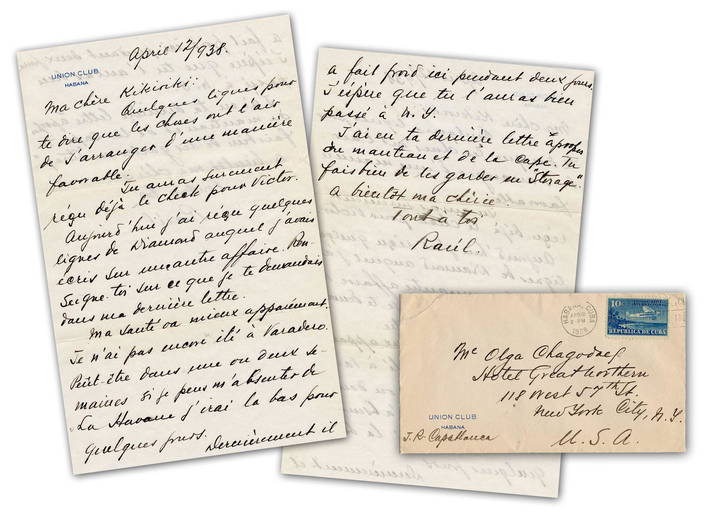 April 12/938.
UNION CLUB
HABANA
Ma chère Kikiriki:
Quelques lignes pour
te dire que les choses ont l'air
de s'arranger d'une manière
favorable.
Tu auras surement
réçu déjà le check pour Victor.
Aujourd'hui j'ai réçu quelques
lignes de Diamond auquel j'avais
écris sur une autre affaire. Ren-
seigne-toi sur ce que je te demandais
dans ma dernière lettre.
Ma santé va mieux apparément.
Je n'ai pas encore été à Varadero.
Peût-être dans une ou deux se-
maines si je peus m'absenter de
La Havane j'irai la bas pour
quelques jours.
Dernièrement il
a fait froid ici pendant deux jours.
J'espère que tu l'auras bien
passé à N.Y.
J'ai eu ta dernière lettre à propos
du manteau et de la cape. Tu
fais bien de les garder en "Storage".
A bientôt ma chérie
Tout à toi
Raúl.
HABANA, CUBA
1938
10¢
REPUBLICA DE CUBA
Me Olga Chagodaef
Hotel Great Northern
118 West 57th St.
New York City, N.Y.
U.S.A.
UNION CLUB
HABANA
J.R. Capablanca